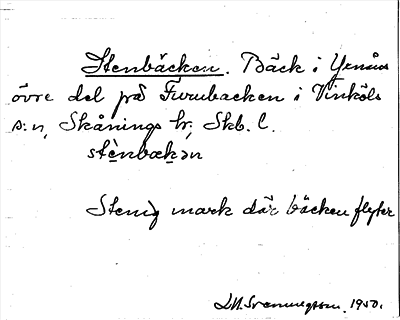 Stenbäcken. Bäck i
övre del på Furubacken i Vinköls
s:n, Skånings hr, Skb. l.
stènbæk̠ən
Stenig mark där bäcken flyter
1950.